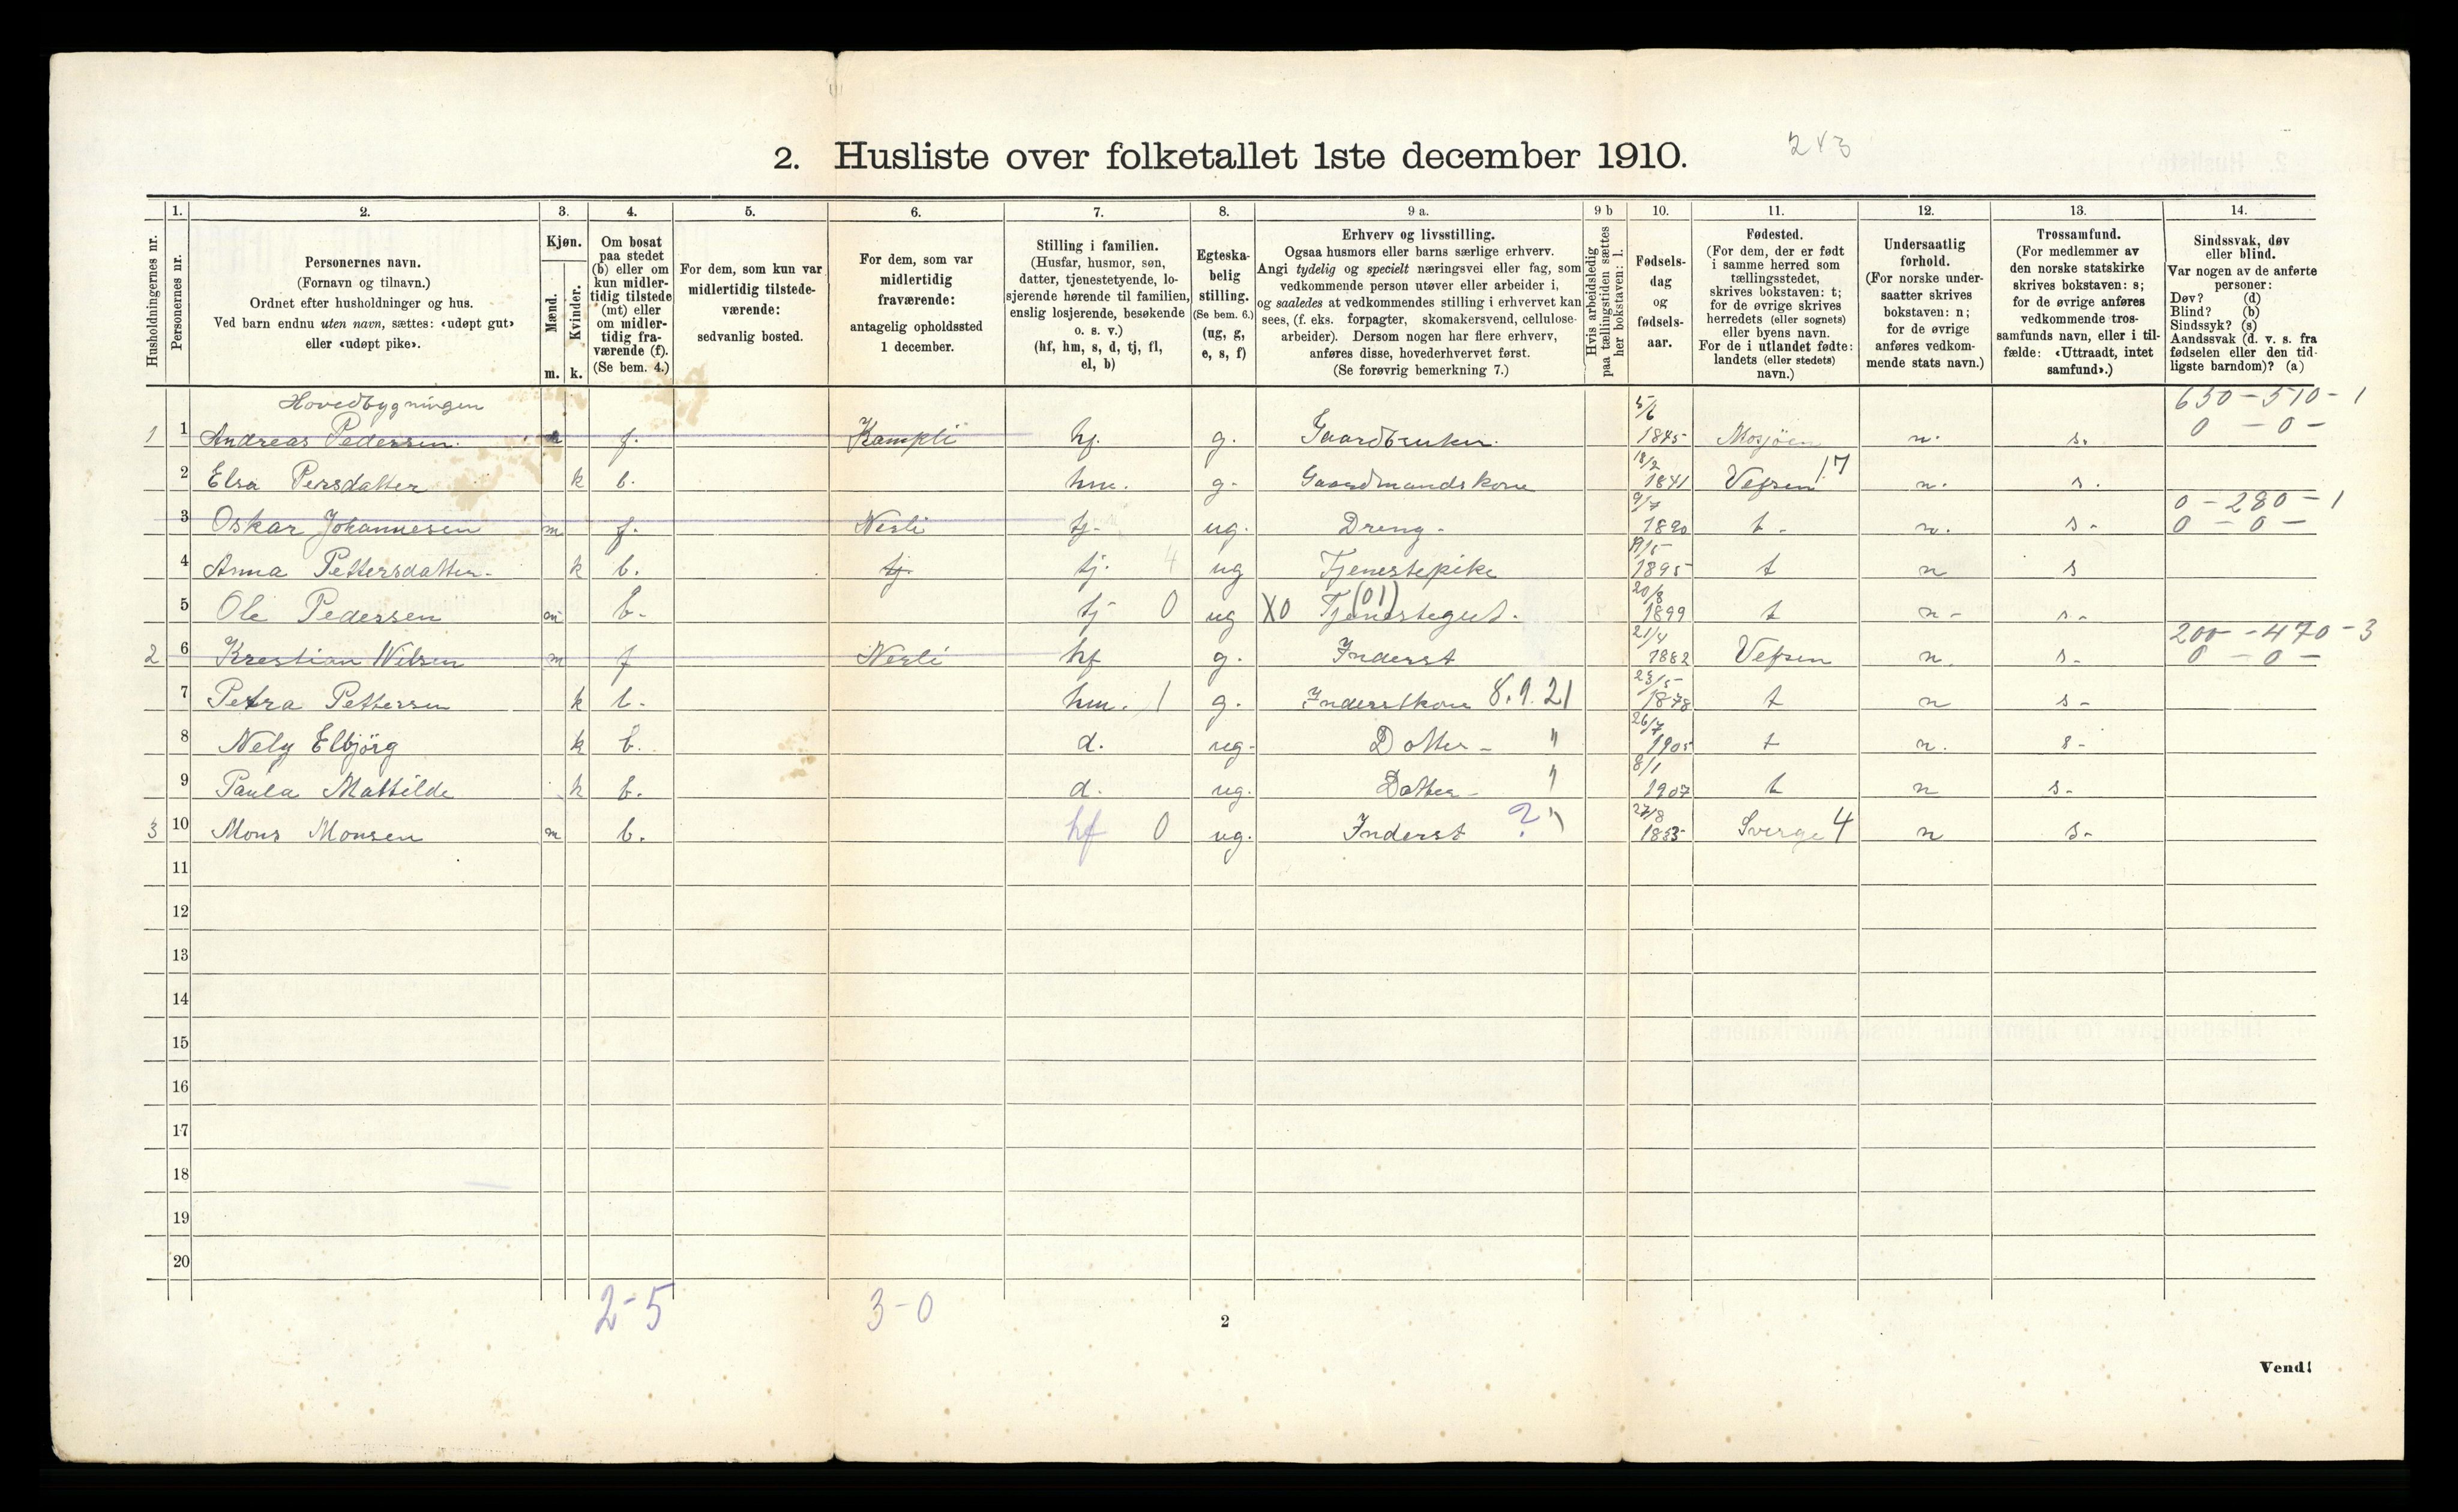 2. Husliste over folketallet 1ste december 1910. 2 x 3
Husholdningernes nr.
1. Personernes nr.
2. Personernes navn.
(Fornavn og tilnavn.)
Ordnet efter husholdninger og hus.
Ved barn endnu uten navn, sættes: «udøpt gut»
eller «udøpt pike».
3. Kjøn.
Mænd. m.
Kvinder. k.
4. Om bosat
paa stedet
(b) eller om
kun midler-
tidig tilstede
(mt) eller
om midler-
tidig fra-
værende (f).
(Se bem. 4.)
5. For dem, som kun var
midlertidig tilstede-
værende:
sedvanlig bosted.
6. For dem, som var
midlertidig
fraværende:
antagelig opholdssted
1 december.
7. Stilling i familien.
(Husfar, husmor, søn,
datter, tjenestetyende, lo-
sjerende hørende til familien,
enslig losjerende, besøkende
o. s. v.)
(hf, hm, s, d, tj, fl,
el, b)
8. Egteska-
belig
stilling.
(Se bem. 6.)
(ug, g,
e, s, f)
9 a. Erhverv og livsstilling.
Ogsaa husmors eller barns særlige erhverv.
Angi tydelig og specielt næringsvei eller fag, som
vedkommende person utøver eller arbeider i,
og saaledes at vedkommendes stilling i erhvervet kan
sees, (f. eks. forpagter, skomakersvend, cellulose-
arbeider). Dersom nogen har flere erhverv,
anføres disse, hovederhvervet først.
(Se forøvrig bemerkning 7.)
9 b Hvis arbeidsledig
paa tællingstiden sættes
her bokstaven: l.
10. Fødsels-
dag
og
fødsels-
aar.
11. Fødested.
(For dem, der er født
i samme herred som
tællingsstedet,
skrives bokstaven: t;
for de øvrige skrives
herredets (eller sognets)
eller byens navn.
For de i utlandet fødte:
landets (eller stedets)
navn.)
12. Undersaatlig
forhold.
(For norske under-
saatter skrives
bokstaven: n;
for de øvrige
anføres vedkom-
mende stats navn.)
13. Trossamfund.
(For medlemmer av
den norske statskirke
skrives bokstaven: s;
for de øvrige anføres
vedkommende tros-
samfunds navn, eller i til-
fælde: «Uttraadt, intet
samfund».)
14. Sindssvak, døv
eller blind.
Var nogen av de anførte
personer:
Døv? (d)
Blind? (b)
Sindssyk? (s)
Aandssvak (d. v. s. fra
fødselen eller den tid-
ligste barndom)? (a)
Hovedbygningen 650 - 510 - 1
1 1 Andreas Pedersen. m f. Kampli hf. g. Gaardbruker. 5/6 1845 Mosjöen n. s. 0 - 0 -
2 Elsa Persdatter k b. hm. g. Gaardmandskone 18/2 1841 Vefsen 17 n. s.
3 Oskar Johannesen m f. Nesli tj. ug. Dreng. 9/7 1890 t. n. s. 0 - 280 - 1
0 - 0 -
4 Anna Pettersdatter. k b. tj. tj. 4 ug Tjenestepike 19/5 1895 t n s
5 Ole Pedersen m b. tj 0 ug X0 Tjenestegut. (01) 20/8 1899 t n s.
2 6 Krestian Nilsen m f Nesli hf g. Inderst 21/4 1882 Vefsen n. s. 200 - 470 - 3
0 - 0 -
7 Petra Pettersen k b. hm. 1 g. Inderstkone 8.9.21 23/5 1878 t n s.
8 Nely Elbjörg k b. d. ug. Datter " 26/7 1905 t n. s.
9 Paula Mathilde k b. d. ug. Datter " 8/1 1907 t n s.
3 10 Mons Monsen m b. hf 0 ug. Inderst ? " 27/8 1853 Sverge 4 n s.
11
12
13
14
15
16
17
18
19
20
2-5 3-0
2
Vend!